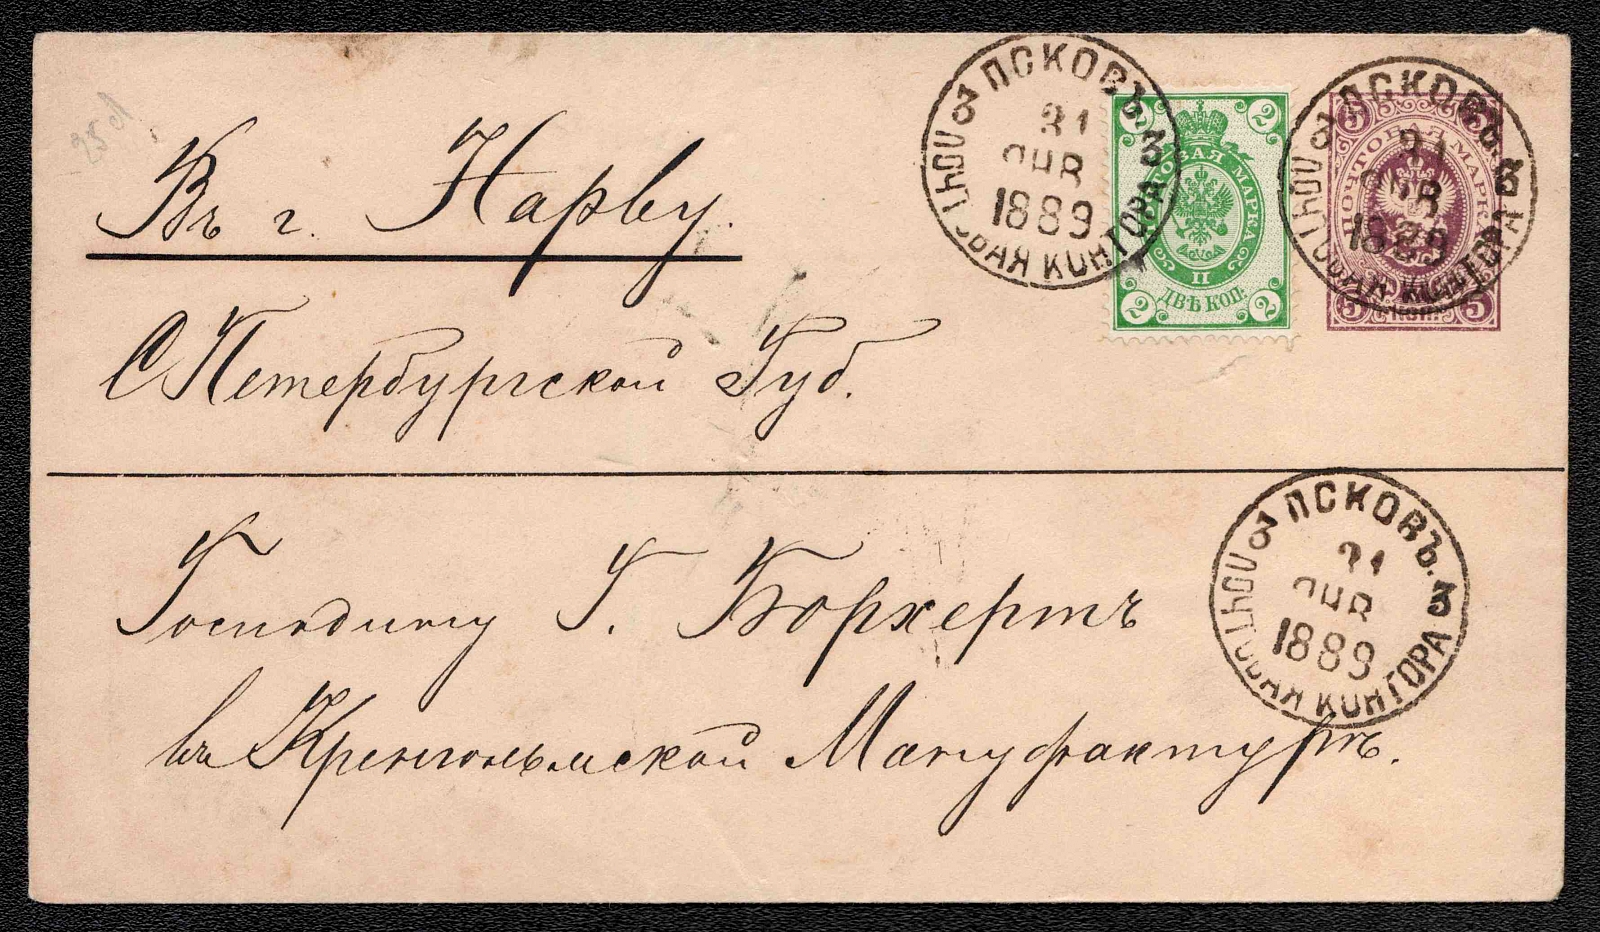 25 d
Въ г. Нарву.
С Петербургской Губ.
Господину Г. Борхертъ
въ Кренгольмской Мануфактурѣ.
ПСКОВЪ. 3
21
ЯНВ
1889
ПОЧТОВАЯ КОНТОРА 3
2 2
ПОЧТОВАЯ МАРКА
II
ДВѢ КОП.
2 2
ПСКОВЪ. 3
21
ЯНВ
1889
ПОЧТОВАЯ КОНТОРА 3
5 5
ПОЧТОВАЯ МАРКА
5 КОП. 5
ПСКОВЪ. 3
21
ЯНВ
1889
ПОЧТОВАЯ КОНТОРА 3